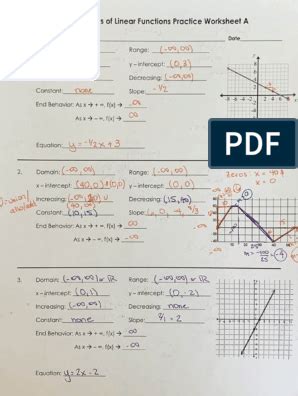 s of Linear Functions Practice Worksheet A
Date
Range: (-∞,∞)
y – intercept: (0,3)
Decreasing: (-∞,∞)
Constant: none Slope: -1/2
End Behavior: As x → + ∞, f(x) → -∞
As x → - ∞, f(x) → ∞
Equation: y = -1/2x + 3
PDF
2. Domain: (-∞, ∞) Range: (-∞, ∞)
zeros x = 40 &
x = 0
x – intercept: (40,0) & (0,0) y – intercept: (0,0)
Increasing: (-∞,10) ∪ Decreasing: (15,40)
Constant: (10,15) Slope:
End Behavior: As x → + ∞, f(x) → ∞
As x → - ∞, f(x) → -∞
3. Domain: (-∞, ∞) or ℝ Range: (-∞, ∞) or ℝ
x – intercept: (0,1) y – intercept: (0,-2)
Increasing: (-∞,∞) Decreasing: none
Constant: none Slope: 2/1 = 2
End Behavior: As x → + ∞, f(x) → ∞
As x → - ∞, f(x) → -∞
Equation: y = 2x - 2